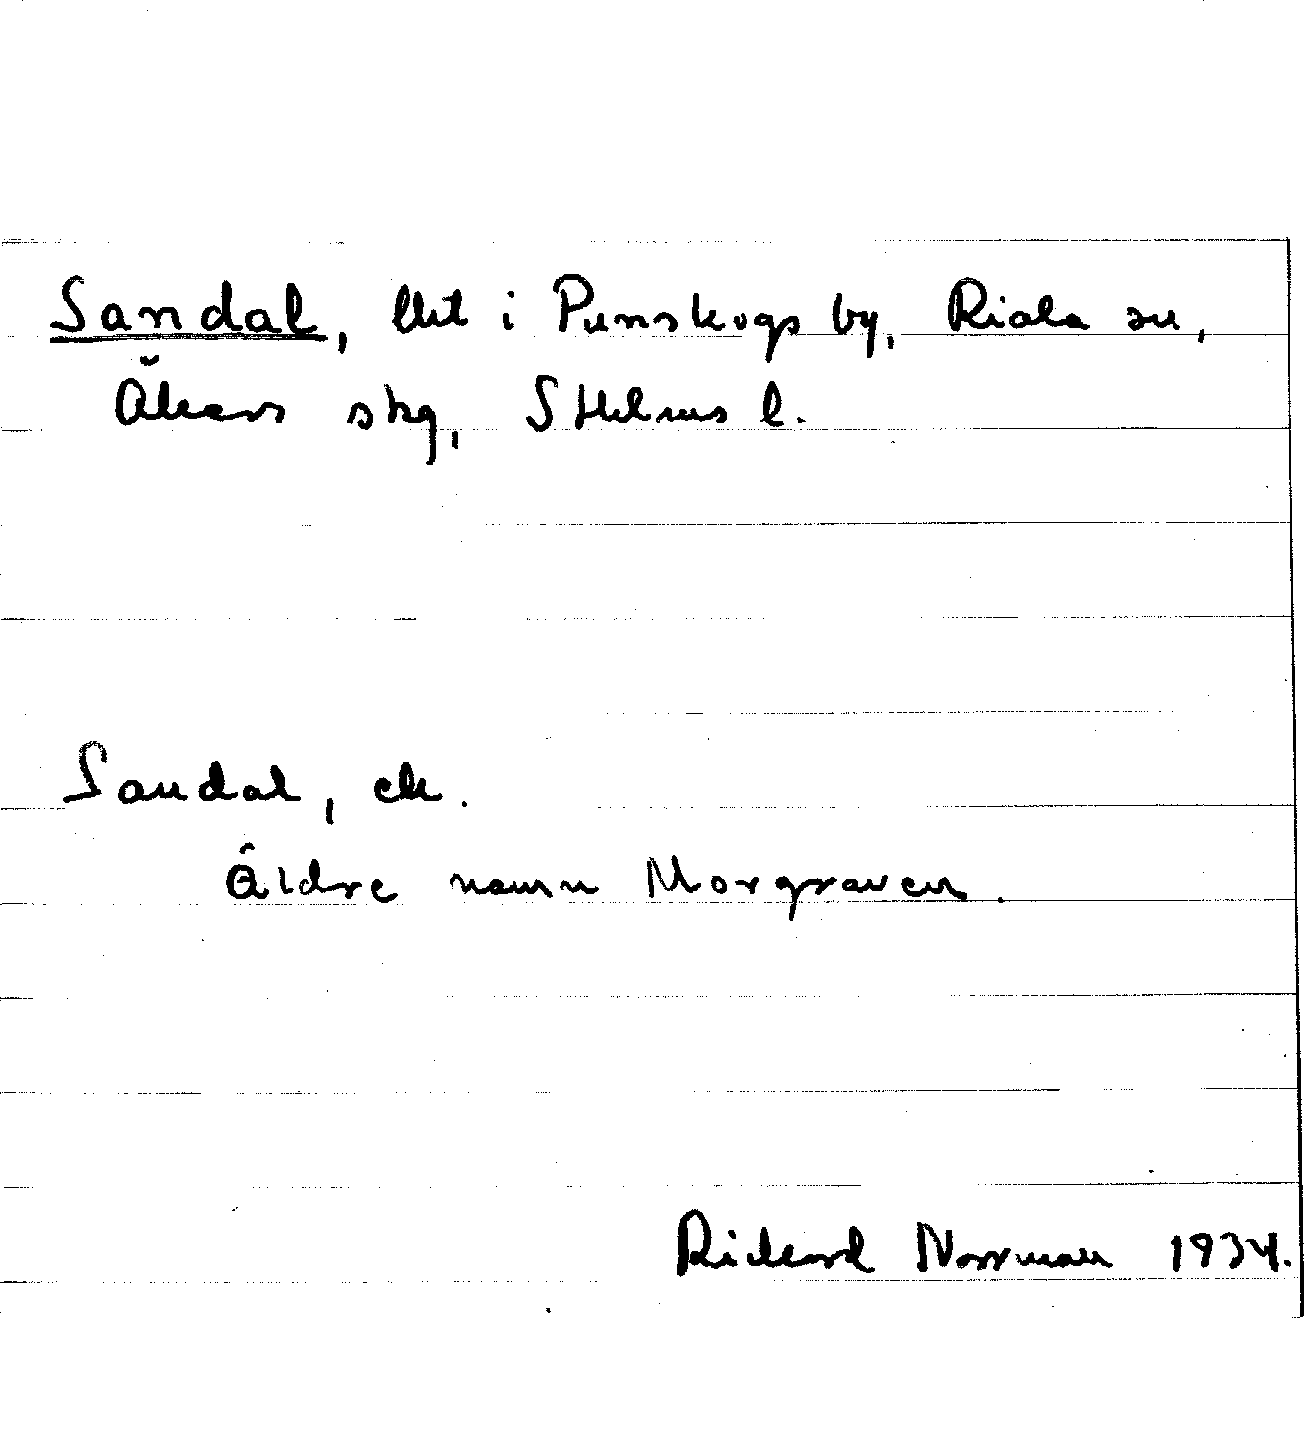 Sandal, lht i Punskogs by, Riala sn,
Åkers skg, Sthlms l.
Sandal,
Äldre namn Morgraven.
Rickard Norrman 1934.